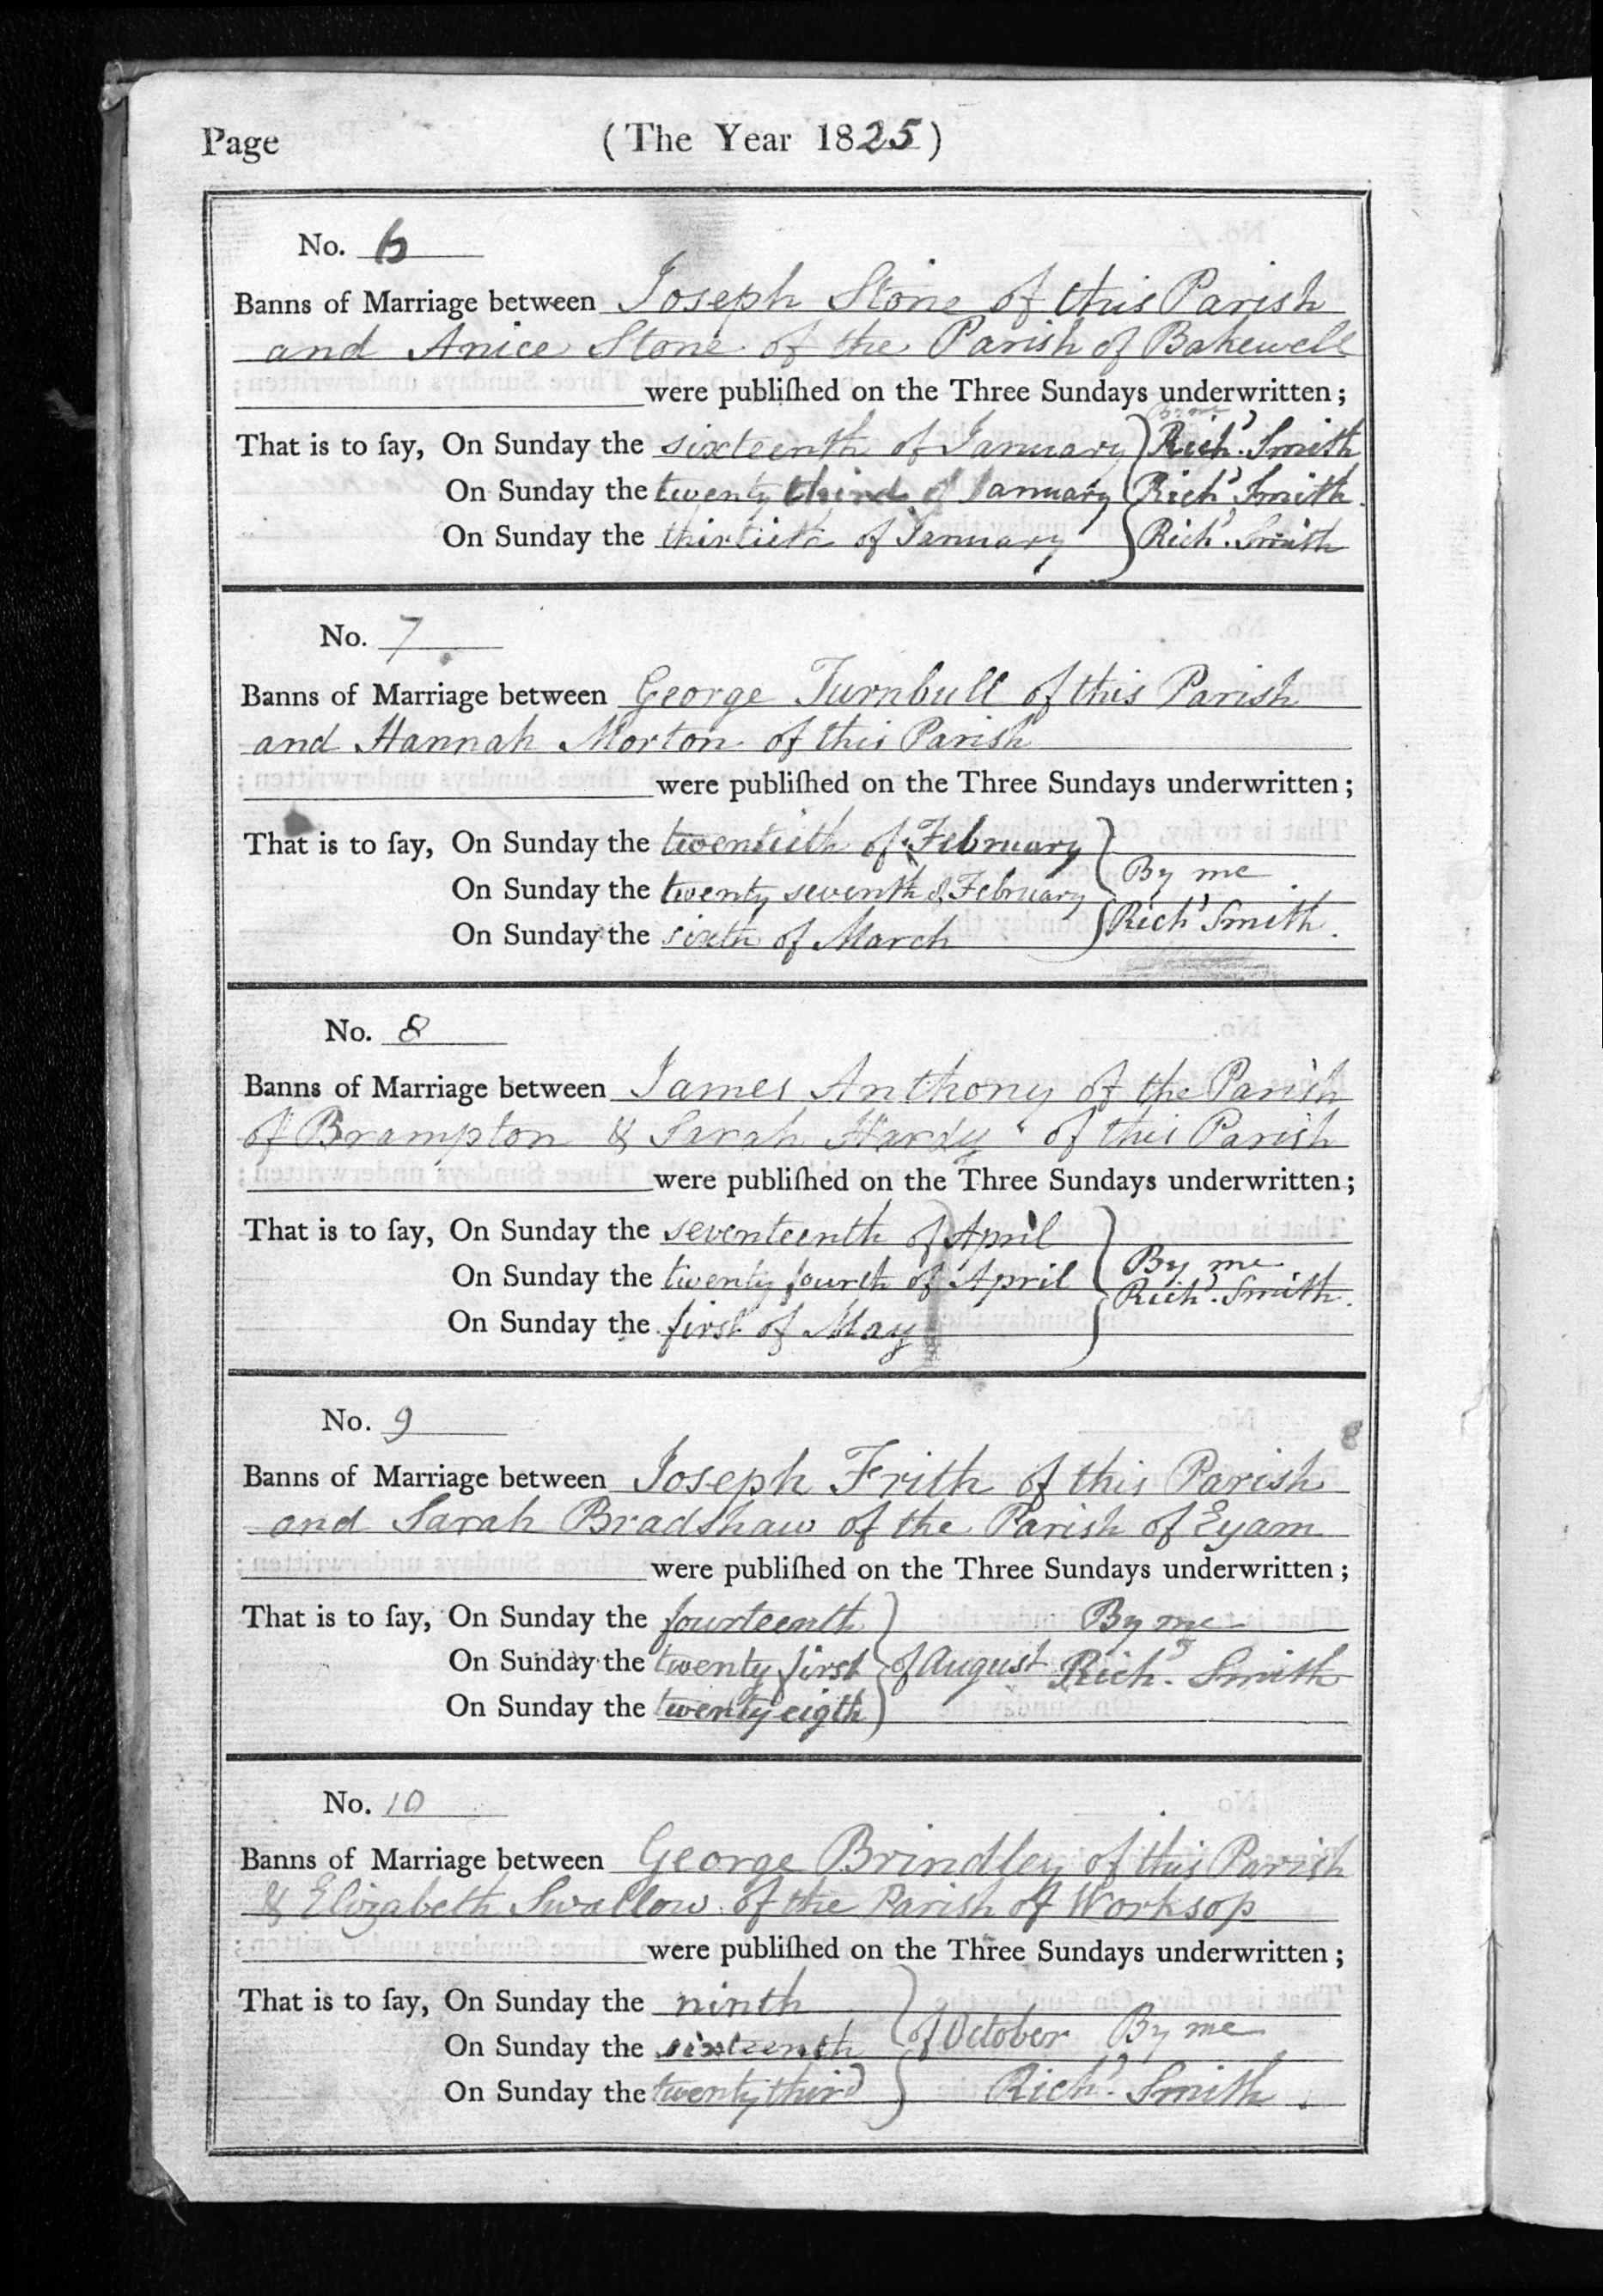 Page (The Year 1825)
No. 6
Banns of Marriage between Joseph Stone of this Parish
and Anice Stone of the Parish of Bakewell
were publiſhed on the Three Sundays underwritten;
by me
That is to ſay, On Sunday the sixteenth of January Richd. Smith
On Sunday the twenty third of January Richd. Smith.
On Sunday the thirtieth of January Richd. Smith
No. 7
Banns of Marriage between George Turnbull of this Parish
and Hannah Morton of this Parish
were publiſhed on the Three Sundays underwritten;
That is to ſay, On Sunday the twentieth of February
On Sunday the twenty seventh of February By me
On Sunday the sixth of March Richd Smith.
No. 8
Banns of Marriage between James Anthony of the Parish
of Brampton & Sarah Hardy of this Parish
were publiſhed on the Three Sundays underwritten;
That is to ſay, On Sunday the seventeenth of April
On Sunday the twenty fourth of April By me
Richd. Smith.
On Sunday the first of May
No. 9
Banns of Marriage between Joseph Frith of this Parish
and Sarah Bradshaw of the Parish of Eyam
were publiſhed on the Three Sundays underwritten;
That is to ſay, On Sunday the fourteenth By me
On Sunday the twenty first of August Richd. Smith
On Sunday the twenty eigth
No. 10
Banns of Marriage between George Brindley of this Parish
& Elizabeth Swallow of the Parish of Worksop
were publiſhed on the Three Sundays underwritten;
That is to ſay, On Sunday the ninth
On Sunday the sixteenth of October By me
On Sunday the twenty third Richd. Smith.